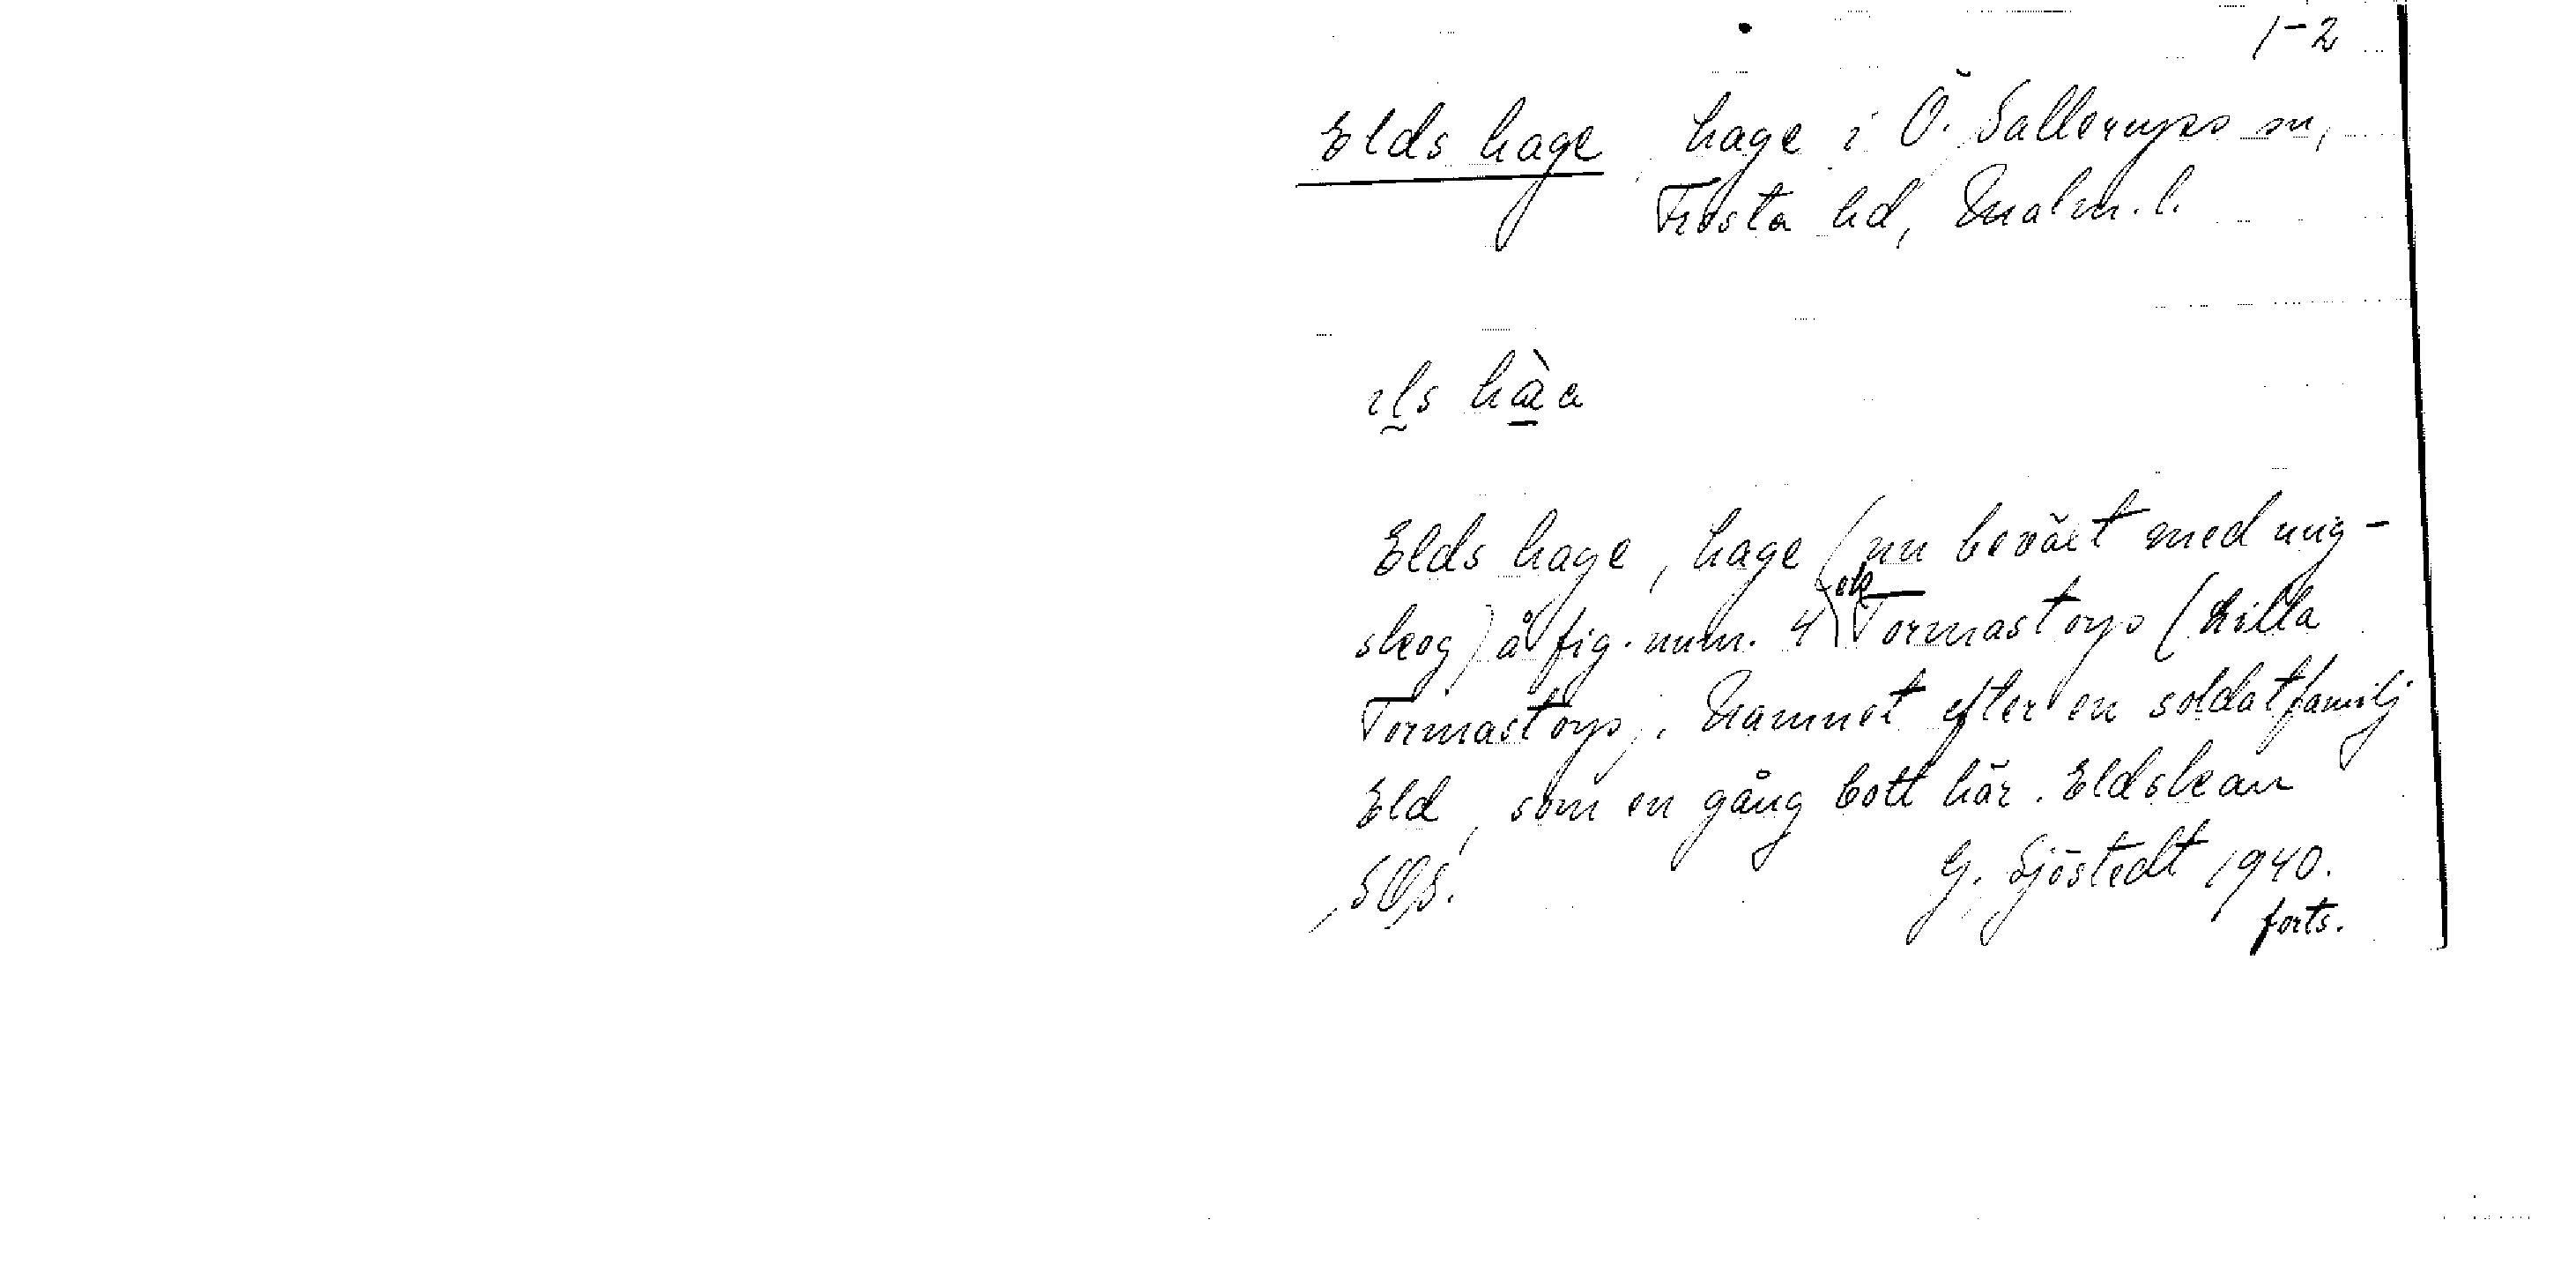 1-2
Elds hage hage i Ö. Sallerups sn,
Frosta hd, Malm. l.
ıl̰s hàa
Elds hage, hage (nu beväxt med ung-
skog) å fig. num. 4 ek Tormastorp (Lilla
Tormastorp). Namnet efter en soldatfamilj
Eld, som en gång bott här. Eldskan
G. Sjöstedt 1940.
forts.